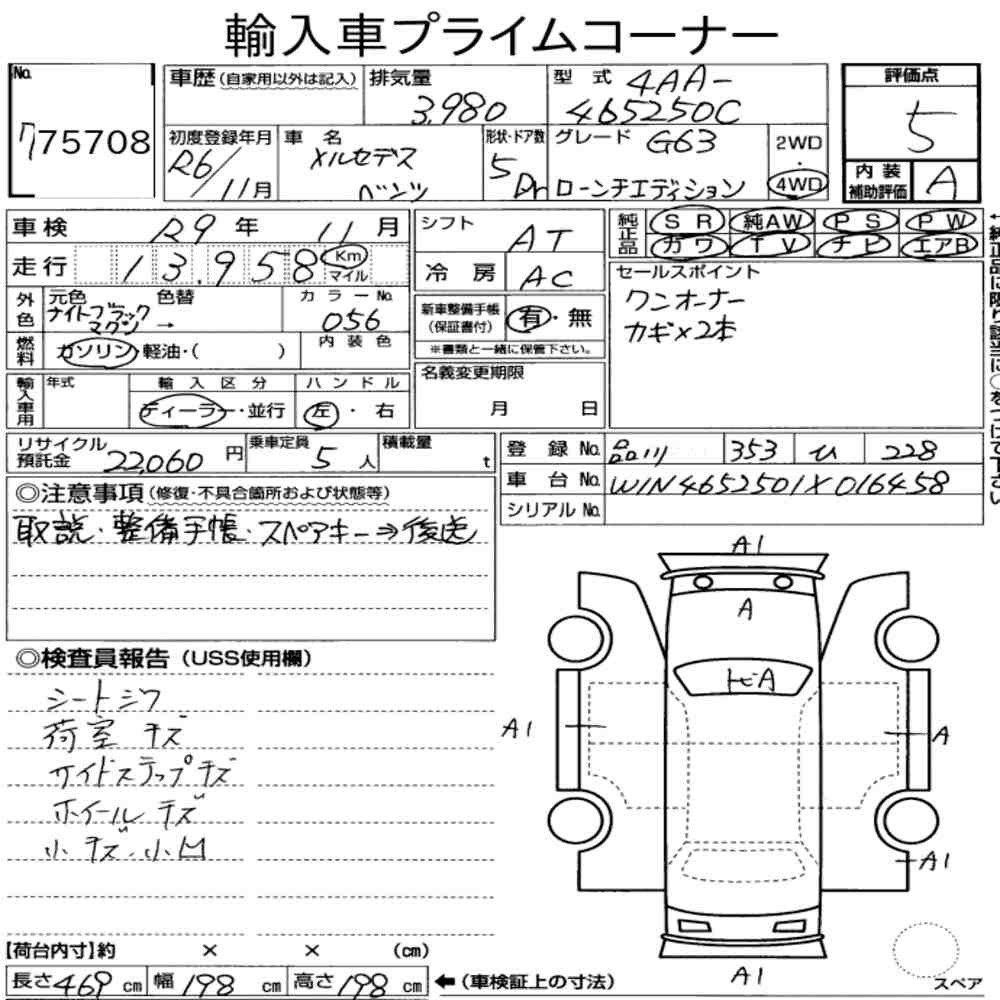 輸入車プライムコーナー
No.
775708
車歴(自家用以外は記入)
排気量
3,980
型式 4AA-
465250C
評価点
5
内装
補助評価
A
初度登録年月
R6/11月
車名
メルセデス
ベンツ
形状・ドア数
5 Dr
グレード G63
ローンチエディション
2WD
・
4WD
車検 R9年 11月
走行 13,958 Km
マイル
外色
元色 色替
ナイトブラック
マグノ →
カラーNo.
056
燃料
ガソリン・軽油・( )
内装色
輸入車用
年式
輸入区分
ディーラー・並行
ハンドル
左・右
シフト
AT
冷房
AC
新車整備手帳
(保証書付)
有・無
※書類と一緒に保管下さい。
名義変更期限
月 日
純正品
SR 純AW PS PW
ガワ TV ナビ エアB
セールスポイント
ワンオーナー
カギ×2本
リサイクル
預託金 22,060円
乗車定員
5人
積載量
t
登録No. 品川 353 ひ 228
車台No. W1N4652501X016458
シリアルNo.
◎注意事項(修復・不具合箇所および状態等)
取説・整備手帳・スペアキー→後送
◎検査員報告(USS使用欄)
シートシワ
荷室 キズ
サイドステップキズ
ホイールキズ
小キズ・小凹
A1
A
トビA
A1
A
A1
A1
スペア
【荷台内寸】約 × × (cm)
長さ 469 cm 幅 198 cm 高さ 198 cm
←(車検証上の寸法)